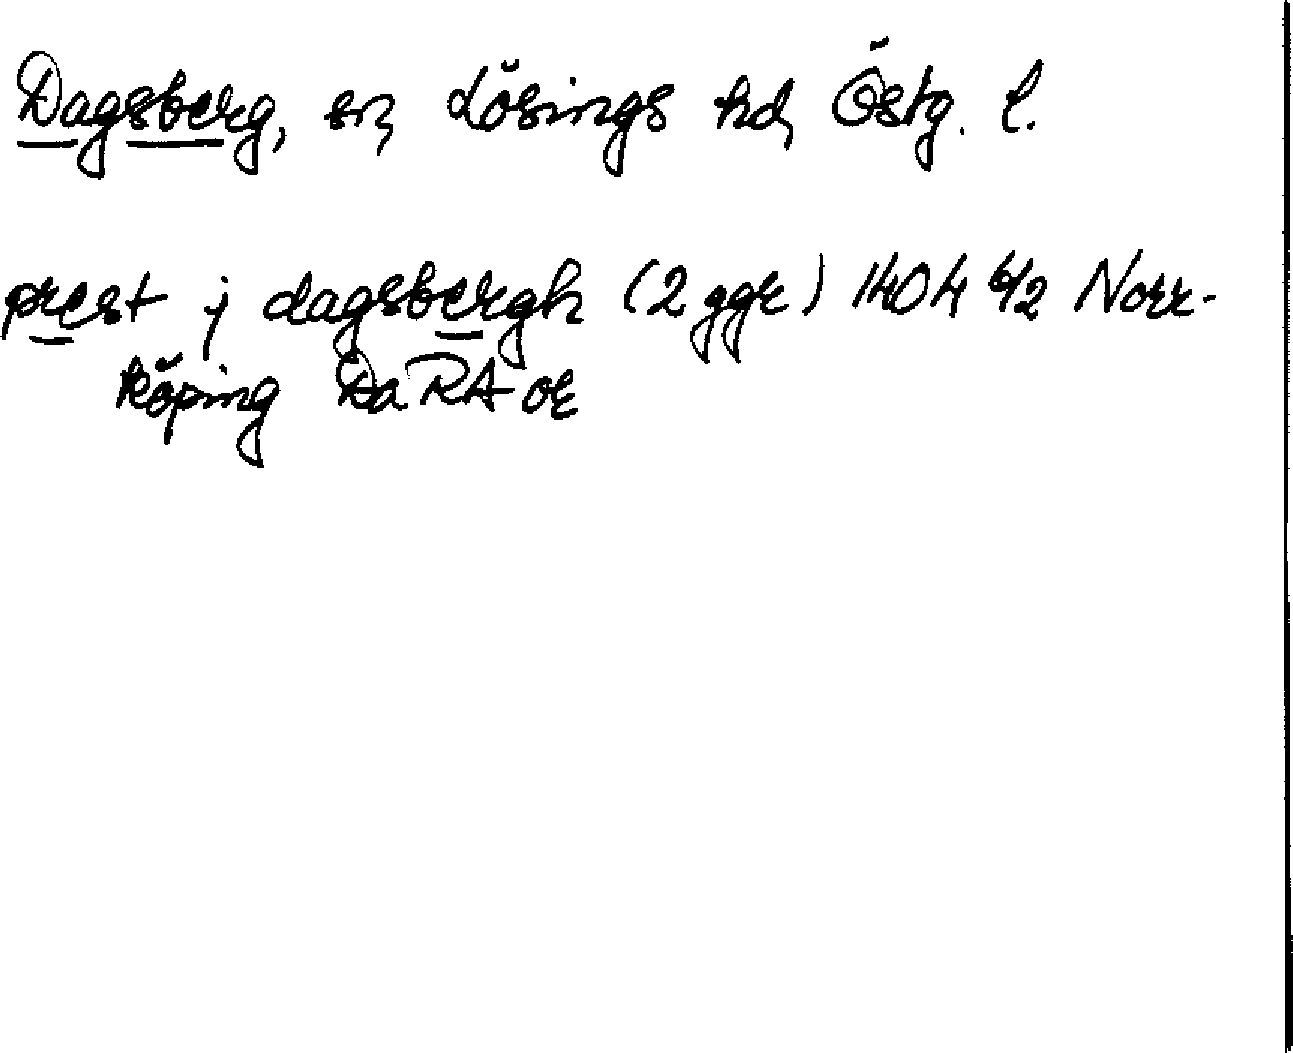 Dagsberg, sn, Lösings hd, Östg. l.
prest j dagsbergh (2 ggr) 1404 6/2 Norr-
köping Da RA or